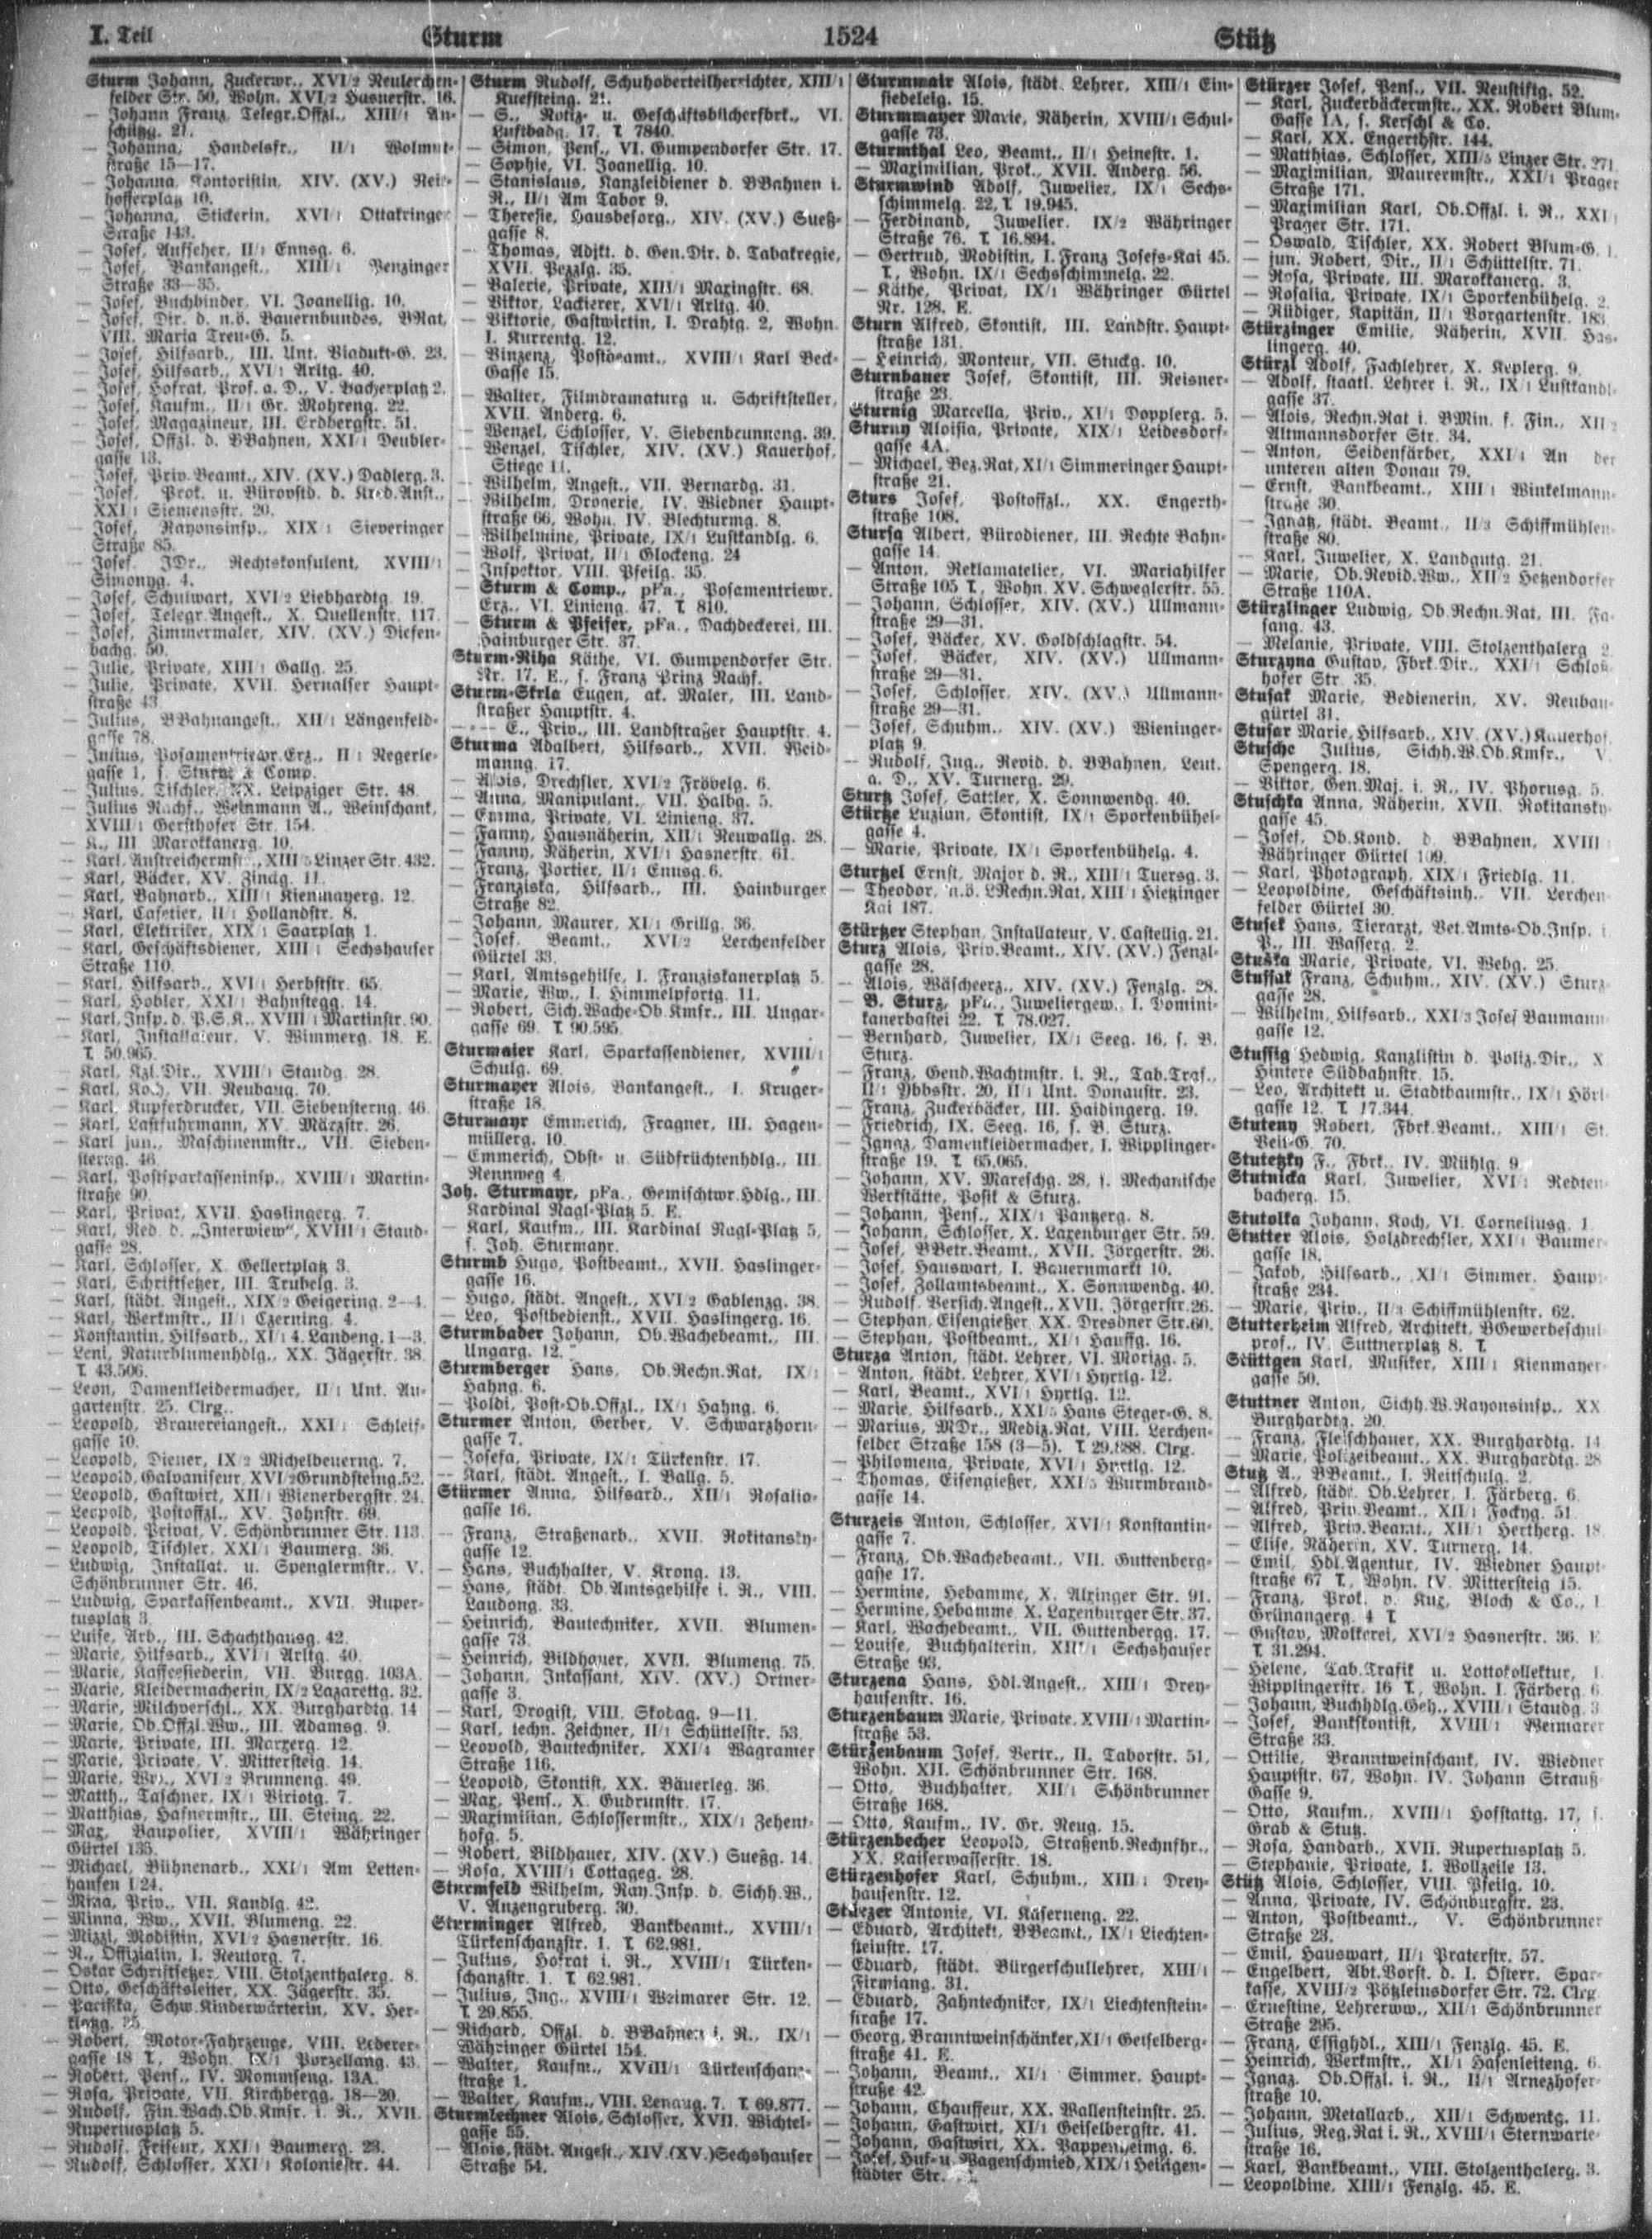 I. Teil Sturm 1524 Stütz
Sturm Johann, Zuckerwr., XVI/2 Neulerchen-
felder Str. 50, Wohn. XVI/2 Hasnerstr. 16.
— Johann Franz, Telegr.Offzl., XIII/1 An-
schützg. 21.
— Johanna, Handelsfr., II/1 Wolmut-
straße 15—17.
— Johanna, Kontoristin, XIV. (XV.) Reit-
hofferplatz 10.
— Johanna, Stickerin, XVI/1 Ottakringer
Straße 143.
— Josef, Aufseher, II/1 Ennsg. 6.
— Josef, Bankangest., XIII/1 Penzinger
Straße 33—35.
— Josef, Buchbinder, VI. Joanellig. 10.
— Josef, Dir. d. n.ö. Bauernbundes, BRat,
VIII. Maria Treu-G. 5.
— Josef, Hilfsarb., III. Unt. Viadukt-G. 23.
— Josef, Hilfsarb., XVI/1 Arltg. 40.
— Josef, Hofrat, Prof. a. D., V. Bacherplatz 2.
— Josef, Kaufm., II/1 Gr. Mohreng. 22.
— Josef, Magazineur, III. Erdbergstr. 51.
— Josef, Offzl. d. BBahnen, XXI/1 Deubler-
gasse 13.
— Josef, Priv.Beamt., XIV. (XV.) Dadlerg. 3.
— Josef, Prok. u. Bürovstd. d. Kred.Anst.,
XXI/1 Siemensstr. 20.
— Josef, Rayonsinsp., XIX/1 Sieveringer
Straße 85.
— Josef, JDr., Rechtskonsulent, XVIII/1
Simonyg. 4.
— Josef, Schulwart, XVI/2 Liebhardtg. 19.
— Josef, Telegr.Angest., X. Quellenstr. 117.
— Josef, Zimmermaler, XIV. (XV.) Diefen-
bachg. 50.
— Julie, Private, XIII/1 Gallg. 25.
— Julie, Private, XVII. Hernalser Haupt-
straße 43.
— Julius, BBahnangest., XII/1 Längenfeld-
gasse 78.
— Julius, Posamentriewr.Erz., II/1 Negerle-
gasse 1, s. Sturm & Comp.
— Julius, Tischler, XX. Leipziger Str. 48.
— Julius Nachf., Weinmann A., Weinschank,
XVIII/1 Gersthofer Str. 154.
— K., III. Marokkanerg. 10.
— Karl, Anstreichermstr., XIII/5 Linzer Str. 432.
— Karl, Bäcker, XV. Zinckg. 11.
— Karl, Bahnarb., XIII/1 Kienmayerg. 12.
— Karl, Cafetier, II/1 Hollandstr. 8.
— Karl, Elektriker, XIX/1 Saarplatz 1.
— Karl, Geschäftsdiener, XIII/1 Sechshauser
Straße 110.
— Karl, Hilfsarb., XVI/1 Herbststr. 65.
— Karl, Hobler, XXI/1 Bahnstegg. 14.
— Karl, Insp. d. P.S.K., XVIII/1 Martinstr. 90.
— Karl, Installateur, V. Wimmerg. 18. E.
T. 50.965.
— Karl, Kzl.Dir., XVIII/1 Staudg. 28.
— Karl, Koch, VII. Neubaug. 70.
— Karl, Kupferdrucker, VII. Siebensterng. 46.
— Karl, Lastfuhrmann, XV. Märzstr. 26.
— Karl jun., Maschinenmstr., VII. Sieben-
sterng. 46.
— Karl, Postsparkasseninsp., XVIII/1 Martin-
straße 90.
— Karl, Privat, XVII. Haslingerg. 7.
— Karl, Red. d. „Interwiew“, XVIII/1 Staud-
gasse 28.
— Karl, Schlosser, X. Gellertplatz 3.
— Karl, Schriftsetzer, III. Trubelg. 3.
— Karl, städt. Angest., XIX/2 Geigering. 2—4.
— Karl, Werkmstr., II/1 Czerning. 4.
— Konstantin, Hilfsarb., XI/1 4. Landeng. 1—3.
— Leni, Naturblumenhdlg., XX. Jägerstr. 38.
T. 43.506.
— Leon, Damenkleidermacher, II/1 Unt. Au-
gartenstr. 25. Clrg.
— Leopold, Brauereiangest., XXI/1 Schleif-
gasse 10.
— Leopold, Diener, IX/2 Michelbeuerng. 7.
— Leopold, Galvaniseur, XVI/2 Grundsteing. 52.
— Leopold, Gastwirt, XII/1 Wienerbergstr. 24.
— Leopold, Postoffzl., XV. Johnstr. 69.
— Leopold, Privat, V. Schönbrunner Str. 113.
— Leopold, Tischler, XXI/1 Baumerg. 36.
— Ludwig, Installat. u. Spenglermstr., V.
Schönbrunner Str. 46.
— Ludwig, Sparkassenbeamt., XVII. Ruper-
tusplatz 3.
— Luise, Arb., III. Schachthausg. 42.
— Marie, Hilfsarb., XVI/1 Arltg. 40.
— Marie, Kaffeesiederin, VII. Burgg. 103A.
— Marie, Kleidermacherin, IX/2 Lazarettg. 32.
— Marie, Milchverschl., XX. Burghardtg. 14
— Marie, Ob.Offzl.Ww., III. Adamsg. 9.
— Marie, Private, III. Marxerg. 12.
— Marie, Private, V. Mittersteig. 14.
— Marie, Ww., XVI/2 Brunneng. 49.
— Matth., Taschner, IX/1 Viriotg. 7.
— Matthias, Hafnermstr., III. Steing. 22.
— Max, Baupolier, XVIII/1 Währinger
Gürtel 135.
— Michael, Bühnenarb., XXI/1 Am Letten-
haufen I/24.
— Mina, Priv., VII. Kandlg. 42.
— Minna, Ww., XVII. Blumeng. 22.
— Mizzi, Modistin, XVI/2 Hasnerstr. 16.
— N., Offizialin, I. Neutorg. 7.
— Oskar Schriftsetzer, VIII. Stolzenthalerg. 8.
— Otto, Geschäftsleiter, XX. Jägerstr. 35.
— Pacifika, Schw.Kinderwärterin, XV. Her-
klotzg. 35.
— Robert, Motor-Fahrzeuge, VIII. Lederer-
gasse 18 T., Wohn. IX/1 Porzellang. 43.
— Robert, Pens., IV. Mommseng. 13A.
— Rosa, Private, VII. Kirchbergg. 18—20.
— Rudolf, Fin.Wach.Ob.Kmsr. i. R., XVII.
Rupertusplatz 5.
— Rudolf, Friseur, XXI/1 Baumerg. 23.
— Rudolf, Schlosser, XXI/1 Koloniestr. 44.
Sturm Rudolf, Schuhoberteilherrichter, XIII/1
Kueffsteing. 21.
— S., Notiz- u. Geschäftsbücherfbrk., VI.
Luftbadg. 17. T. 7840.
— Simon, Pens., VI. Gumpendorfer Str. 17.
— Sophie, VI. Joanellig. 10.
— Stanislaus, Kanzleidiener d. BBahnen i.
R., II/1 Am Tabor 9.
— Therese, Hausbesorg., XIV. (XV.) Sueß-
gasse 8.
— Thomas, Adjkt. d. Gen.Dir. d. Tabakregie,
XVII. Pezzlg. 35.
— Valerie, Private, XIII/1 Maxingstr. 68.
— Viktor, Lackierer, XVI/1 Arltg. 40.
— Viktorie, Gastwirtin, I. Drahtg. 2, Wohn.
I. Kurrentg. 12.
— Vinzenz, Postbeamt., XVIII/1 Karl Beck-
Gasse 15.
— Walter, Filmdramaturg u. Schriftsteller,
XVII. Anderg. 6.
— Wenzel, Schlosser, V. Siebenbrunneng. 39.
— Wenzel, Tischler, XIV. (XV.) Kauerhof,
Stiege 11.
— Wilhelm, Angest., VII. Bernardg. 31.
— Wilhelm, Drogerie, IV. Wiedner Haupt-
straße 66, Wohn. IV. Blechturmg. 8.
— Wilhelmine, Private, IX/1 Lustkandlg. 6.
— Wolf, Privat, II/1 Glockeng. 24
— Inspektor, VIII. Pfeilg. 35.
— Sturm & Comp., pFa., Posamentriewr.
Erz., VI. Linieng. 47. T. 810.
— Sturm & Pfeifer, pFa., Dachdeckerei, III.
Hainburger Str. 37.
Sturm-Riha Käthe, VI. Gumpendorfer Str.
Nr. 17. E., s. Franz Prinz Nachf.
Sturm-Skrla Eugen, ak. Maler, III. Land-
straßer Hauptstr. 4.
— — E., Priv., III. Landstraßer Hauptstr. 4.
Sturma Adalbert, Hilfsarb., XVII. Weid-
manng. 17.
— Alois, Drechsler, XVI/2 Fröbelg. 6.
— Anna, Manipulant., VII. Halbg. 5.
— Emma, Private, VI. Linieng. 37.
— Fanny, Hausnäherin, XII/1 Neuwallg. 28.
— Fanny, Näherin, XVI/1 Hasnerstr. 61.
— Franz, Portier, II/1 Ennsg. 6.
— Franziska, Hilfsarb., III. Hainburger
Straße 82.
— Johann, Maurer, XI/1 Grillg. 36.
— Josef, Beamt., XVI/2 Lerchenfelder
Gürtel 33.
— Karl, Amtsgehilfe, I. Franziskanerplatz 5.
— Marie, Ww., I. Himmelpfortg. 11.
— Robert, Sich.Wache-Ob.Kmsr., III. Ungar-
gasse 69. T. 90.595.
Sturmaier Karl, Sparkassendiener, XVIII/1
Schulg. 69.
Sturmayer Alois, Bankangest., I. Kruger-
straße 18.
Sturmayr Emmerich, Fragner, III. Hagen-
müllerg. 10.
— Emmerich, Obst- u. Südfrüchtenhdlg., III.
Rennweg 4.
Joh. Sturmayr, pFa., Gemischtwr.Hdlg., III.
Kardinal Nagl-Platz 5. E.
— Karl, Kaufm., III. Kardinal Nagl-Platz 5,
s. Joh. Sturmayr.
Sturmb Hugo, Postbeamt., XVII. Haslinger-
gasse 16.
— Hugo, städt. Angest., XVI/2 Gablenzg. 38.
— Leo, Postbedienst., XVII. Haslingerg. 16.
Sturmbader Johann, Ob.Wachebeamt., III.
Ungarg. 12.
Sturmberger Hans, Ob.Rechn.Rat, IX/1
Hahng. 6.
— Poldi, Post-Ob.Offzl., IX/1 Hahng. 6.
Sturmer Anton, Gerber, V. Schwarzhorn-
gasse 7.
— Josefa, Private, IX/1 Türkenstr. 17.
— Karl, städt. Angest., I. Ballg. 5.
Stürmer Anna, Hilfsarb., XII/1 Rosalia-
gasse 16.
— Franz, Straßenarb., XVII. Rokitansky-
gasse 12.
— Hans, Buchhalter, V. Krong. 13.
— Hans, städt. Ob.Amtsgehilfe i. R., VIII.
Laudong. 33.
— Heinrich, Bautechniker, XVII. Blumen-
gasse 73.
— Heinrich, Bildhauer, XVII. Blumeng. 75.
— Johann, Inkassant, XIV. (XV.) Ortner-
gasse 3.
— Karl, Drogist, VIII. Skodag. 9—11.
— Karl, techn. Zeichner, II/1 Schüttelstr. 53.
— Leopold, Bautechniker, XXI/4 Wagramer
Straße 116.
— Leopold, Skontist, XX. Bäuerleg. 36.
— Max, Pens., X. Gudrunstr. 17.
— Maximilian, Schlossermstr., XIX/1 Zehent-
hofg. 5.
— Robert, Bildhauer, XIV. (XV.) Sueßg. 14.
— Rosa, XVIII/1 Cottageg. 28.
Sturmfeld Wilhelm, Ray.Insp. d. Sichh.W.,
V. Anzengruberg. 30.
Sturminger Alfred, Bankbeamt., XVIII/1
Türkenschanzstr. 1. T. 62.981.
— Julius, Hofrat i. R., XVIII/1 Türken-
schanzstr. 1. T. 62.981.
— Julius, Ing., XVIII/1 Weimarer Str. 12.
T. 29.855.
— Richard, Offzl. d. BBahnen i. R., IX/1
Währinger Gürtel 154.
— Walter, Kaufm., XVIII/1 Türkenschanz-
straße 1.
— Walter, Kaufm., VIII. Lenaug. 7. T. 69.877.
Sturmlechner Alois, Schlosser, XVII. Wichtel-
gasse 55.
— Alois, städt. Angest., XIV. (XV.) Sechshauser
Straße 54.
Sturmmair Alois, städt. Lehrer, XIII/1 Ein-
siedeleig. 15.
Sturmmayer Marie, Näherin, XVIII/1 Schul-
gasse 73.
Sturmthal Leo, Beamt., II/1 Heinestr. 1.
— Maximilian, Prok., XVII. Anderg. 56.
Sturmwind Adolf, Juwelier, IX/1 Sechs-
schimmelg. 22, T. 19.945.
— Ferdinand, Juwelier, IX/2 Währinger
Straße 76. T. 16.894.
— Gertrud, Modistin, I. Franz Josefs-Kai 45.
T., Wohn. IX/1 Sechsschimmelg. 22.
— Käthe, Privat, IX/1 Währinger Gürtel
Nr. 128. E.
Sturn Alfred, Skontist, III. Landstr. Haupt-
straße 131.
— Heinrich, Monteur, VII. Stuckg. 10.
Sturnbauer Josef, Skontist, III. Reisner-
straße 23.
Sturnig Marcella, Priv., XI/1 Dopplerg. 5.
Sturny Aloisia, Private, XIX/1 Leidesdorf-
gasse 4A.
— Michael, Bez.Rat, XI/1 Simmeringer Haupt-
straße 21.
Sturs Josef, Postoffzl., XX. Engerth-
straße 108.
Stursa Albert, Bürodiener, III. Rechte Bahn-
gasse 14.
— Anton, Reklamatelier, VI. Mariahilfer
Straße 105 T., Wohn. XV. Schweglerstr. 55.
— Johann, Schlosser, XIV. (XV.) Ullmann-
straße 29—31.
— Josef, Bäcker, XV. Goldschlagstr. 54.
— Josef, Bäcker, XIV. (XV.) Ullmann-
straße 29—31.
— Josef, Schlosser, XIV. (XV.) Ullmann-
straße 29—31.
— Josef, Schuhm., XIV. (XV.) Wieninger-
platz 9.
— Rudolf, Ing., Revid. d. BBahnen, Leut.
a. D., XV. Turnerg. 29.
Sturtz Josef, Sattler, X. Sonnwendg. 40.
Stürtze Luzian, Skontist, IX/1 Sporkenbühel-
gasse 4.
— Marie, Private, IX/1 Sporkenbühelg. 4.
Sturtzel Ernst, Major d. R., XIII/1 Tuersg. 3.
— Theodor, n.ö. LRechn.Rat, XIII/1 Hietzinger
Kai 187.
Stürtzer Stephan, Installateur, V. Castellig. 21.
Sturz Alois, Priv.Beamt., XIV. (XV.) Fenzl-
gasse 28.
— Alois, Wäscheerz., XIV. (XV.) Fenzlg. 28.
— B. Sturz, pFa., Juweliergew., I. Domini-
kanerbastei 22. T. 78.027.
— Bernhard, Juwelier, IX/1 Seeg. 16, s. B.
Sturz.
— Franz, Gend.Wachtmstr. i. R., Tab.Traf.,
II/1 Ybbsstr. 20, II/1 Unt. Donaustr. 23.
— Franz, Zuckerbäcker, III. Haidingerg. 19.
— Friedrich, IX. Seeg. 16, s. B. Sturz.
— Ignaz, Damenkleidermacher, I. Wipplinger-
straße 19. T. 65.065.
— Johann, XV. Mareschg. 28, s. Mechanische
Werkstätte, Posik & Sturz.
— Johann, Pens., XIX/1 Pantzerg. 8.
— Johann, Schlosser, X. Laxenburger Str. 59.
— Josef, BBetr.Beamt., XVII. Jörgerstr. 26.
— Josef, Hauswart, I. Bauernmarkt 10.
— Josef, Zollamtsbeamt., X. Sonnwendg. 40.
— Rudolf, Versich.Angest., XVII. Jörgerstr. 26.
— Stephan, Eisengießer, XX. Dresdner Str. 60.
— Stephan, Postbeamt., XI/1 Hauffg. 16.
Sturza Anton, städt. Lehrer, VI. Morizg. 5.
— Anton, städt. Lehrer, XVI/1 Hyrtlg. 12.
— Karl, Beamt., XVI/1 Hyrtlg. 12.
— Marie, Hilfsarb., XXI/5 Hans Steger-G. 8.
— Marius, MDr., Mediz.Rat, VIII. Lerchen-
felder Straße 158 (3—5). T. 29.888. Clrg.
— Philomena, Private, XVI/1 Hyrtlg. 12.
— Thomas, Eisengießer, XXI/5 Wurmbrand-
gasse 14.
Sturzeis Anton, Schlosser, XVI/1 Konstantin-
gasse 7.
— Franz, Ob.Wachebeamt., VII. Guttenberg-
gasse 17.
— Hermine, Hebamme, X. Alxinger Str. 91.
— Hermine, Hebamme, X. Laxenburger Str. 37.
— Karl, Wachebeamt., VII. Guttenbergg. 17.
— Louise, Buchhalterin, XIII/1 Sechshauser
Straße 93.
Sturzena Hans, Hdl.Angest., XIII/1 Drey-
hausenstr. 16.
Sturzenbaum Marie, Private, XVIII/1 Martin-
straße 53.
Stürzenbaum Josef, Vertr., II. Taborstr. 51,
Wohn. XII. Schönbrunner Str. 168.
— Otto, Buchhalter, XII/1 Schönbrunner
Straße 168.
— Otto, Kaufm., IV. Gr. Neug. 15.
Stürzenbecher Leopold, Straßenb.Rechnfhr.,
XX. Kaiserwasserstr. 18.
Stürzenhofer Karl, Schuhm., XIII/1 Drey-
hausenstr. 12.
Stürzer Antonie, VI. Kaserneng. 22.
— Eduard, Architekt, BBeamt., IX/1 Liechten-
steinstr. 17.
— Eduard, städt. Bürgerschullehrer, XIII/1
Firmiang. 31.
— Eduard, Zahntechniker, IX/1 Liechtenstein-
straße 17.
— Georg, Branntweinschänker, XI/1 Geiselberg-
straße 41. E.
— Johann, Beamt., XI/1 Simmer. Haupt-
straße 42.
— Johann, Chauffeur, XX. Wallensteinstr. 25.
— Johann, Gastwirt, XI/1 Geiselbergstr. 41.
— Johann, Gastwirt, XX. Pappenheimg. 6.
— Josef, Huf- u. Wagenschmied, XIX/1 Heiligen-
städter Str.
Stürzer Josef, Pens., VII. Neustiftg. 52.
— Karl, Zuckerbäckermstr., XX. Robert Blum-
Gasse 1A, s. Kerschl & Co.
— Karl, XX. Engerthstr. 144.
— Matthias, Schlosser, XIII/5 Linzer Str. 271.
— Maximilian, Maurermstr., XXI/1 Prager
Straße 171.
— Maximilian Karl, Ob.Offzl. i. R., XXI/1
Prager Str. 171.
— Oswald, Tischler, XX. Robert Blum-G. 1.
— jun. Robert, Dir., II/1 Schüttelstr. 71.
— Rosa, Private, III. Marokkanerg. 3.
— Rosalia, Private, IX/1 Sporkenbühelg. 2.
— Rüdiger, Kapitän, II/1 Vorgartenstr. 183.
Stürzinger Emilie, Näherin, XVII. Has-
lingerg. 40.
Stürzl Adolf, Fachlehrer, X. Keplerg. 9.
— Adolf, staatl. Lehrer i. R., IX/1 Lustkandl-
gasse 37.
— Alois, Rechn.Rat i. BMin. f. Fin., XII/2
Altmannsdorfer Str. 34.
— Anton, Seidenfärber, XXI/4 An der
unteren alten Donau 79.
— Ernst, Bankbeamt., XIII/1 Winkelmann-
straße 30.
— Ignatz, städt. Beamt., II/3 Schiffmühlen-
straße 80.
— Karl, Juwelier, X. Landgutg. 21.
— Marie, Ob.Revid.Ww., XII/2 Hetzendorfer
Straße 110A.
Stürzlinger Ludwig, Ob.Rechn.Rat, III. Fa-
sang. 43.
— Melanie, Private, VIII. Stolzenthalerg 2.
Sturzyna Gustav, Fbrk.Dir., XXI/1 Schloß-
hofer Str. 35.
Stusak Marie, Bedienerin, XV. Neubau-
gürtel 31.
Stusar Marie, Hilfsarb., XIV. (XV.) Kauerhof.
Stusche Julius, Sichh.W.Ob.Kmsr., V.
Spengerg. 18.
— Viktor, Gen.Maj. i. R., IV. Phorusg. 5.
Stuschka Anna, Näherin, XVII. Rokitansky-
gasse 45.
— Josef, Ob.Kond. d. BBahnen, XVIII/
Währinger Gürtel 109.
— Karl, Photograph, XIX/1 Friedlg. 11.
— Leopoldine, Geschäftsinh., VII. Lerchen-
felder Gürtel 30.
Stusek Hans, Tierarzt, Vet.Amts-Ob.Insp. i.
P., III. Wasserg. 2.
Stuska Marie, Private, VI. Webg. 25.
Stussak Franz, Schuhm., XIV. (XV.) Sturz-
gasse 28.
— Wilhelm, Hilfsarb., XXI/3 Josef Baumann-
gasse 12.
Stussig Hedwig, Kanzlistin d. Poliz.Dir., X.
Hintere Südbahnstr. 15.
— Leo, Architekt u. Stadtbaumstr., IX/1 Hörl-
gasse 12. T. 17.344.
Stuteny Robert, Fbrk.Beamt., XIII/1 St.
Veit-G. 70.
Stutetzky F., Fbrk., IV. Mühlg. 9.
Stutnicka Karl, Juwelier, XVI/1 Redten-
bacherg. 15.
Stutolka Johann, Koch, VI. Corneliusg. 1.
Stutter Alois, Holzdrechsler, XXI/1 Baumer-
gasse 18.
— Jakob, Hilfsarb., XI/1 Simmer. Haupt-
straße 234.
— Marie, Priv., II/3 Schiffmühlenstr. 62.
Stutterheim Alfred, Architekt, BGewerbeschul-
prof., IV. Suttnerplatz 8. T.
Stüttgen Karl, Musiker, XIII/1 Kienmayer-
gasse 50.
Stuttner Anton, Sichh.W.Rayonsinsp., XX.
Burghardtg. 20.
— Franz, Fleischhauer, XX. Burghardtg. 14
— Marie, Polizeibeamt., XX. Burghardtg. 28
Stutz A., BBeamt., I. Reitschulg. 2.
— Alfred, städt. Ob.Lehrer, I. Färberg. 6.
— Alfred, Priv.Beamt., XII/1 Fockyg. 51.
— Alfred, Priv.Beamt., XII/1 Hertherg. 18.
— Elise, Näherin, XV. Turnerg. 14.
— Emil, Hdl.Agentur, IV. Wiedner Haupt-
straße 67 T., Wohn. IV. Mittersteig 15.
— Franz, Prok. v. Kux, Bloch & Co., I.
Grünangerg. 4 T.
— Gustav, Molkerei, XVI/2 Hasnerstr. 36. E
T. 31.294.
— Helene, Tab.Trafik u. Lottokollektur, I.
Wipplingerstr. 16 T., Wohn. I. Färberg. 6.
— Johann, Buchhdlg.Geh., XVIII/1 Staudg. 3
— Josef, Bankskontist, XVIII/1 Weimarer
Straße 33.
— Ottilie, Branntweinschank, IV. Wiedner
Hauptstr. 67, Wohn. IV. Johann Strauß-
Gasse 9.
— Otto, Kaufm., XVIII/1 Hofstattg. 17, s.
Grab & Stutz.
— Rosa, Handarb., XVII. Rupertusplatz 5.
— Stephanie, Private, I. Wollzeile 13.
Stütz Alois, Schlosser, VIII. Pfeilg. 10.
— Anna, Private, IV. Schönburgstr. 23.
— Anton, Postbeamt., V. Schönbrunner
Straße 23.
— Emil, Hauswart, II/1 Praterstr. 57.
— Engelbert, Abt.Vorst. d. I. Österr. Spar-
kasse, XVIII/2 Pötzleinsdorfer Str. 72. Clrg.
— Ernestine, Lehrerww., XII/1 Schönbrunner
Straße 295.
— Franz, Essighdl., XIII/1 Fenzlg. 45. E.
— Heinrich, Werkmstr., XI/1 Hasenleiteng. 6.
— Ignaz, Ob.Offzl. i. R., II/1 Arnezhofer-
straße 10.
— Johann, Metallarb., XII/1 Schwenkg. 11.
— Julius, Reg.Rat i. R., XVIII/1 Sternwarte-
straße 16.
— Karl, Bankbeamt., VIII. Stolzenthalerg. 3.
— Leopoldine, XIII/1 Fenzlg. 45. E.